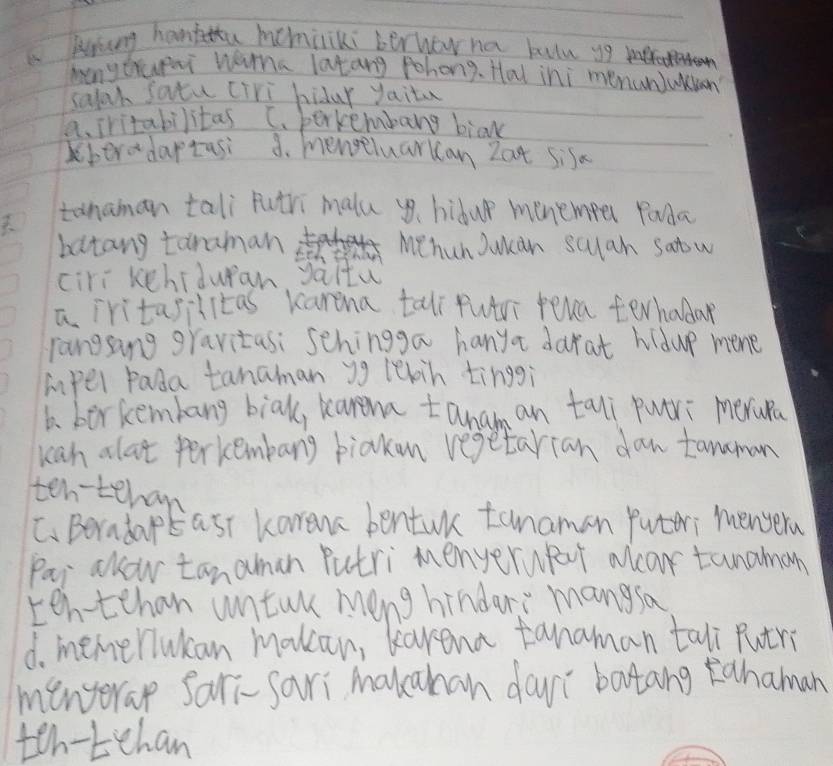 6. Burung hantu memiliki berwarna bulu yg
menyerupai warna latang pohong. Hal ini menunjukkan
salah satu ciri hidup yaitu
a. iritabilitas C. berkembang biak
beradaptasi d. mengeluarkan zat sisa
7. tanaman tali Putri malu yg. hidup menempel Pada
batang tanaman menunjukan salah satu
ciri kehidupan yaitu
a. iritasilitas karena tali putri peka terhadap
rangsang gravitasi sehingga hanya dapat hidup mene
mpel pada tanaman yg lebih tinggi
b. berkembang biak, karena tanaman tali putri merupa
kan alat perkembang biakan vegetarian dan tanaman
teh-tehan
C. Beradaptasi karena bentuk tanaman putri menyeru
Pai akar tanaman Putri menyerupai akar tanaman
teh-tehan untuk menghindari mangsa
d. memerlukan makan, karena tanaman tali Putri
menyerap sari-sari makanan dari batang tanaman
teh-tehan